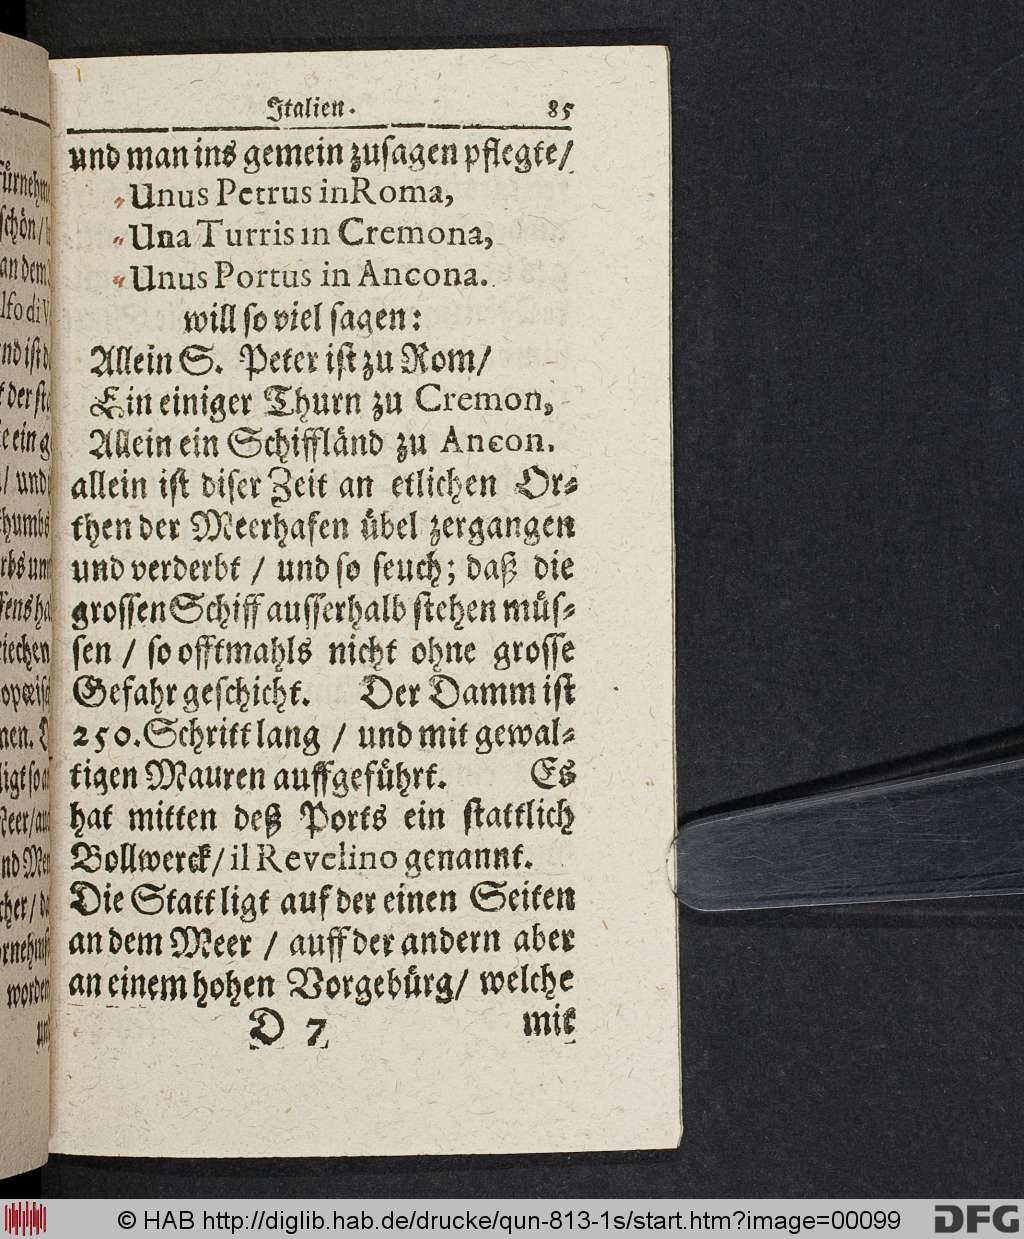 Italien. 85
und man ins gemein zusagen pflegte/
"Unus Petrus in Roma,
"Una Turris in Cremona,
"Unus Portus in Ancona.
will so viel sagen:
Allein S. Peter ist zu Rom/
Ein einiger Thurn zu Cremon,
Allein ein Schiffländ zu Ancon.
allein ist diser Zeit an etlichen Or-
then der Meerhafen übel zergangen
und verderbt / und so seuch; daß die
grossen Schiff ausserhalb stehen müs-
sen / so offtmahls nicht ohne grosse
Gefahr geschicht. Der Damm ist
250. Schritt lang / und mit gewal-
tigen Mauren auffgeführt. Es
hat mitten deß Ports ein stattlich
Bollwerck/ il Revelino genannt.
Die Statt ligt auf der einen Seiten
an dem Meer / auff der andern aber
an einem hohen Vorgebürg/ welche
D 7 mit
© HAB http://diglib.hab.de/drucke/qun-813-1s/start.htm?image=00099
DFG